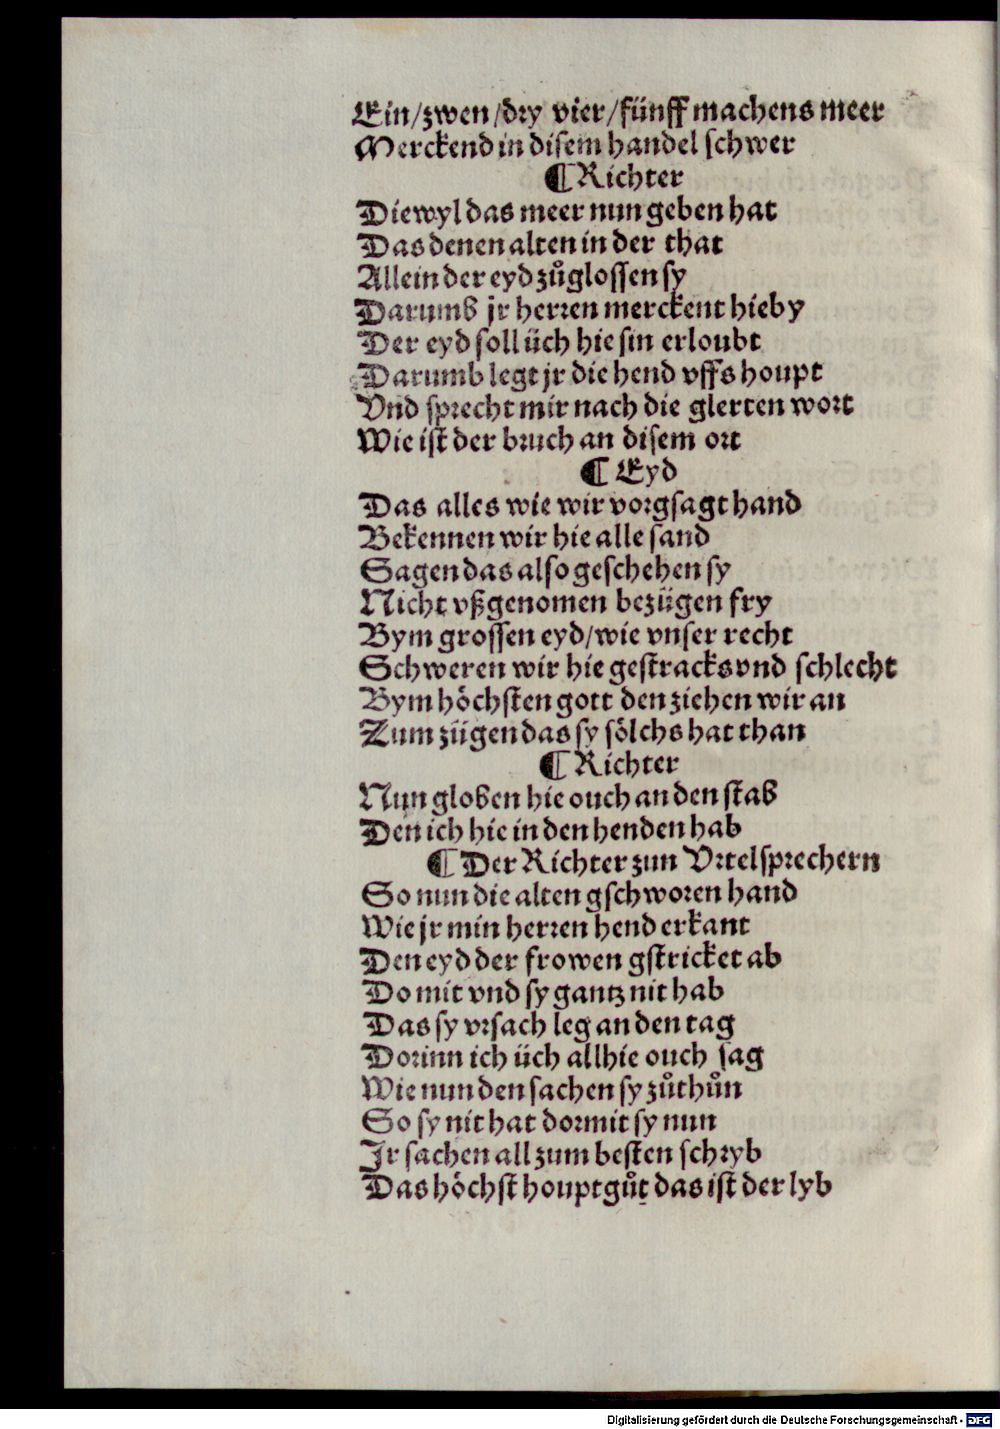 Ein/zwen/dry vier/fünff machens meer
Merckend in disem handel schwer
¶ Richter
Diewyl das meer nun geben hat
Das denen alten in der that
Allein der eyd zůglossen sy
Darumb jr herren merckent hieby
Der eyd soll üch hie sin erloubt
Darumb legt jr die hend vffs houpt
Vnd sprecht mir nach die glerten wort
Wie ist der bruch an disem ort
¶ Eyd
Das alles wie wir vorgsagt hand
Bekennen wir hie alle sand
Sagen das also geschehen sy
Nicht vßgenomen bezügen fry
Bym grossen eyd/wie vnser recht
Schweren wir hie gestracks vnd schlecht
Bym höchsten gott den ziehen wir an
Zum zügen das sy sölchs hat than
¶ Richter
Nun globen hie ouch an den stab
Den ich hie in den henden hab
¶ Der Richter zun Vrtelsprechern
So nun die alten gschworen hand
Wie jr min herren hend erkant
Den eyd der frowen gstricket ab
Do mit vnd sy gantz nit hab
Das sy vrsach leg an den tag
Dorinn ich üch allhie ouch sag
Wie nun den sachen sy zůthůn
So sy nit hat dormit sy nun
Jr sachen all zum besten schryb
Das höchst houptgůt das ist der lyb
Digitalisierung gefördert durch die Deutsche Forschungsgemeinschaft - DFG